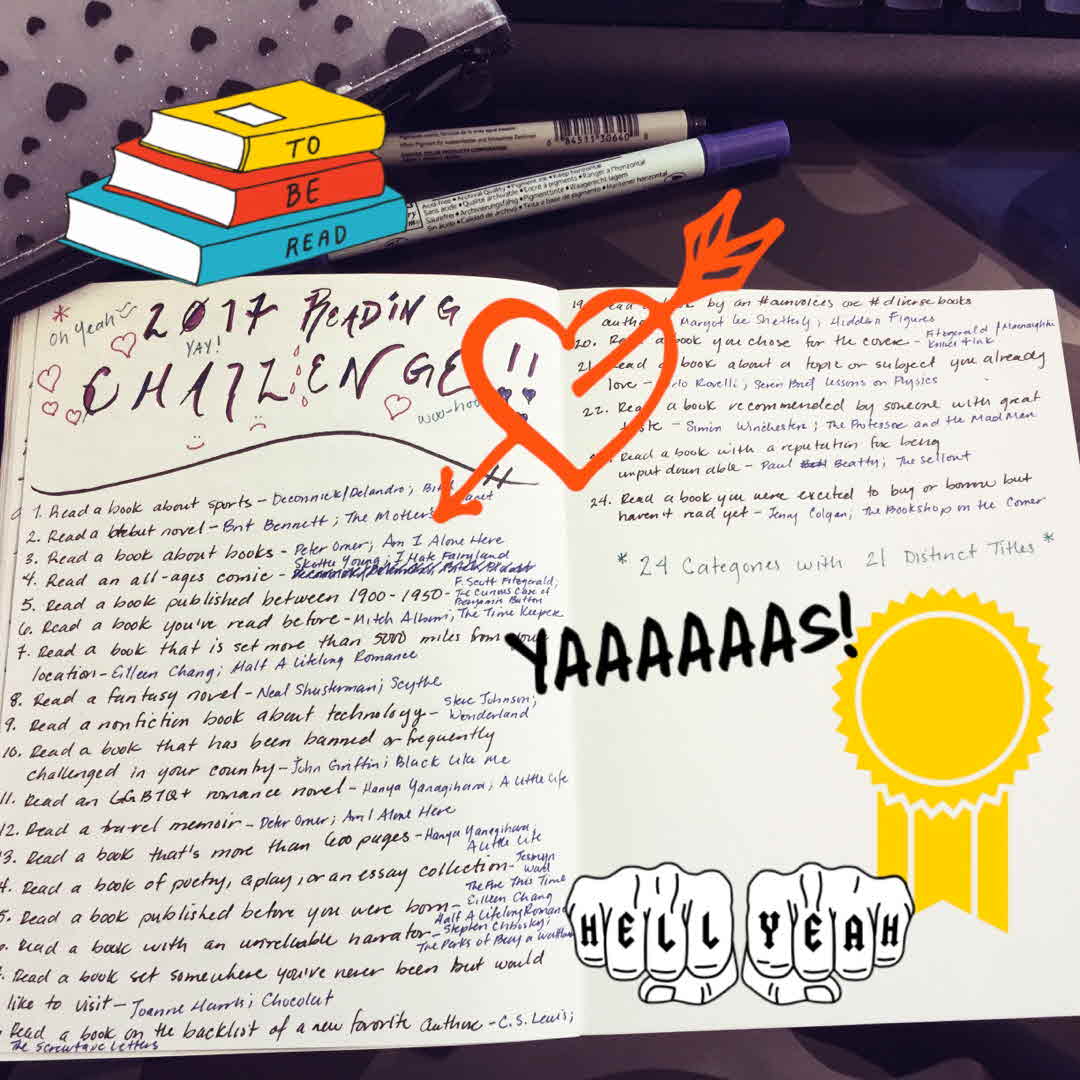 TO
BE
READ
6 84511 30640 8
oh yeah
2017 READING
YAY!
CHALLENGE!!
woo-hoo
1. Read a book about sports - Deconnick/Delandro; Bitch Planet
2. Read a debut novel - Brit Bennett; The Mothers
3. Read a book about books - Peter Orner; Am I Alone Here
4. Read an all-ages comic - Skottie Young; I Hate Fairyland
5. Read a book published between 1900-1950 - F. Scott Fitzgerald;
The Curious Case of
Benjamin Button
6. Read a book you've read before - Mitch Albom; The Time Keeper
7. Read a book that is set more than 5000 miles from your
location - Eileen Chang; Half A Lifelong Romance
8. Read a fantasy novel - Neal Shusterman; Scythe
9. Read a nonfiction book about technology - Steve Johnson;
Wonderland
10. Read a book that has been banned or frequently
challenged in your country - John Griffin; Black Like Me
11. Read an LGBTQ+ romance novel - Hanya Yanagihara; A Little Life
12. Read a travel memoir - Peter Orner; Am I Alone Here
13. Read a book that's more than 600 pages - Hanya Yanagihara
A Little Life
4. Read a book of poetry, a play, or an essay collection - Jesmyn
Ward
The Fire This Time
5. Read a book published before you were born - Eileen Chang
Half A Lifelong Romance
Read a book with an unreliable narrator - Stephen Chbosky;
The Perks of Being a Wallflower
Read a book set somewhere you've never been but would
like to visit - Joanne Harris; Chocolat
Read a book on the backlist of a new favorite author - C.S. Lewis;
The Screwtape Letters
19. Read a book by an #ownvoices or #diversebooks
author Margot Lee Shetterly; Hidden Figures
20. Read a book you chose for the cover - Fitzgerald/Macnaughton
Knives & Ink
21. Read a book about a topic or subject you already
love - Carlo Rovelli; Seven Brief Lessons on Physics
22. Read a book recommended by someone with great
taste - Simon Winchester; The Professor and the Mad Man
Read a book with a reputation for being
unputdownable - Paul Beatty; The Sellout
24. Read a book you were excited to buy or borrow but
haven't read yet - Jenny Colgan; The Bookshop on the Corner
* 24 Categories with 21 Distinct Titles *
YAAAAAAS!
HELL YEAH